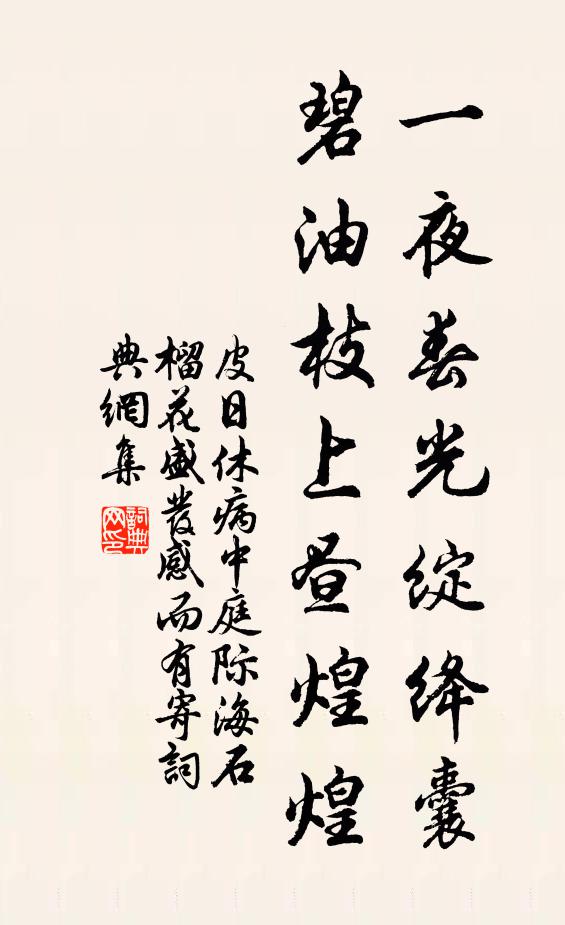 一夜春光綻絳囊
碧油枝上昼煌煌
皮日休病中庭际海石
榴花盛發感而有寄詞
典網集
詞典网印